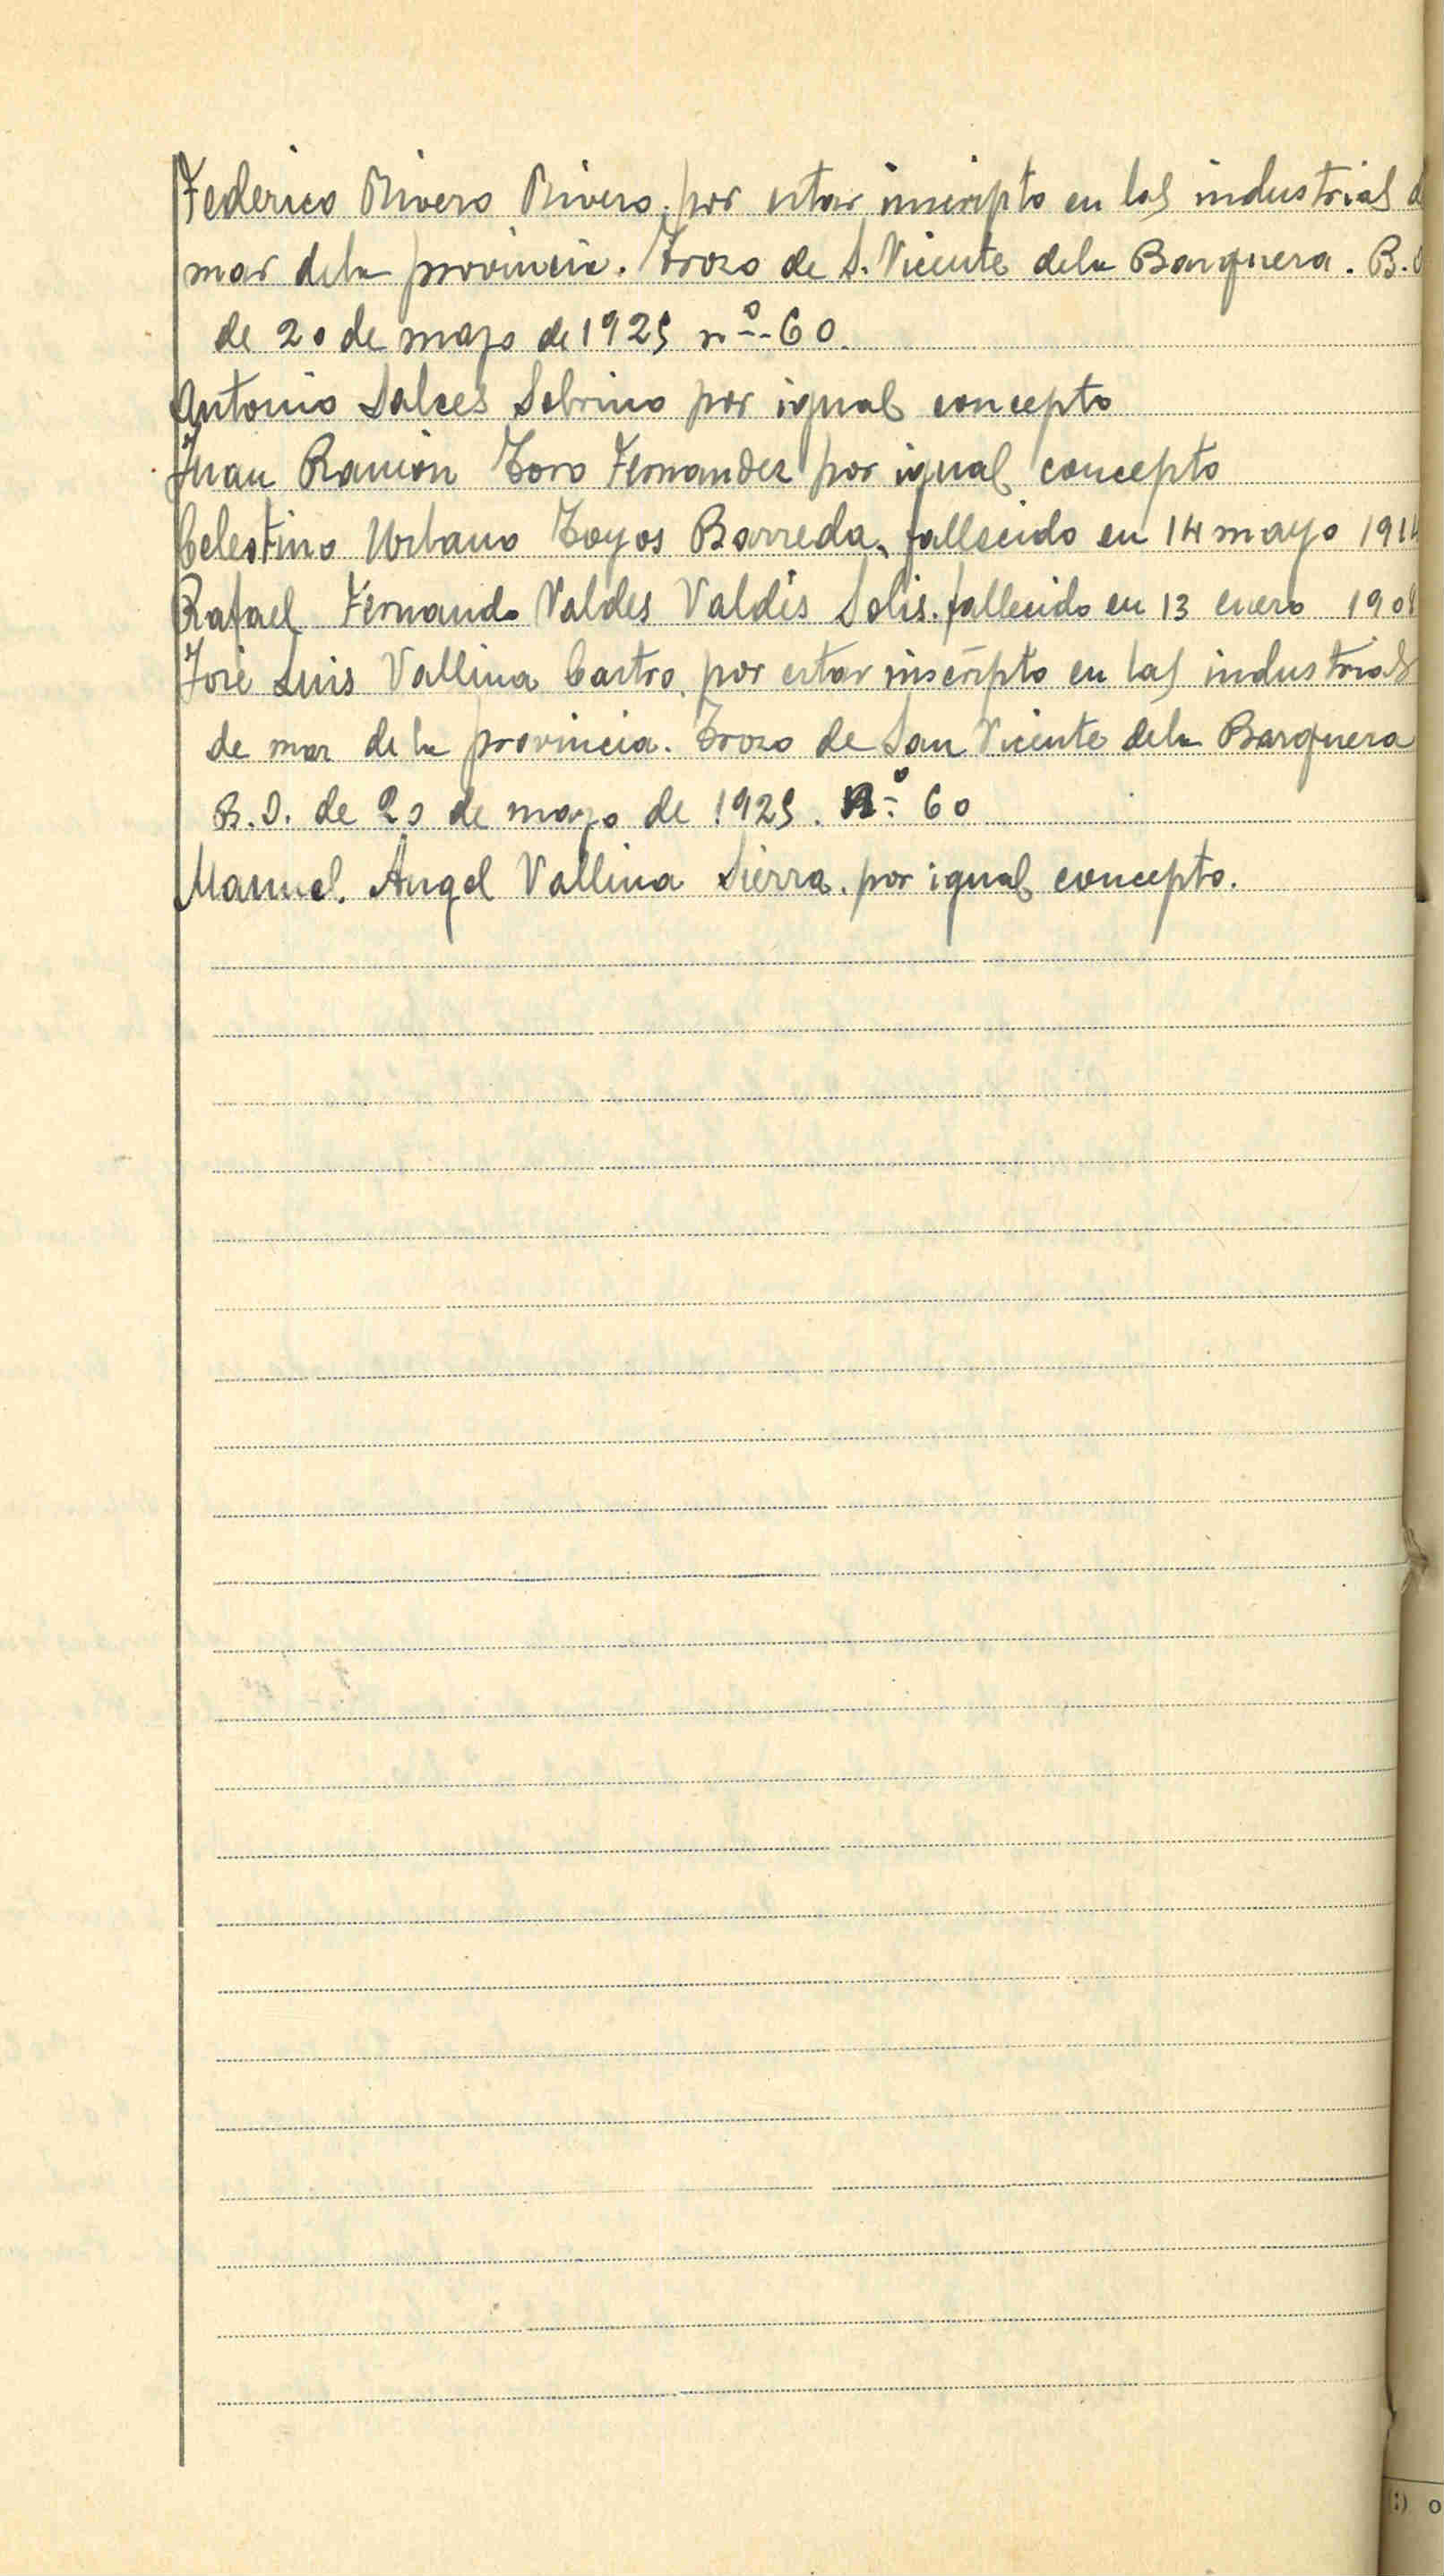 Federico Rivero Rivero, por estar inscripto en las industrias d
mar de la provincia. Trozo de S. Vicente de la Barquera. B.O
de 20 de mayo de 1925 nº 60.
Antonio Salces Sobrino por igual concepto
Juan Ramón Toro Fernandez por igual concepto
Celestino Urbano Toyos Barreda, fallecido en 14 mayo 191
Rafael Fernando Valdes Valdés Solis. fallecido en 13 enero 190
José Luis Vallina Castro, por estar inscripto en las industrias
de mar de la provincia. Trozo de San Vicente de la Barquera
B.O. de 20 de mayo de 1925. Nº 60
Manuel Angel Vallina Sierra. por igual concepto.